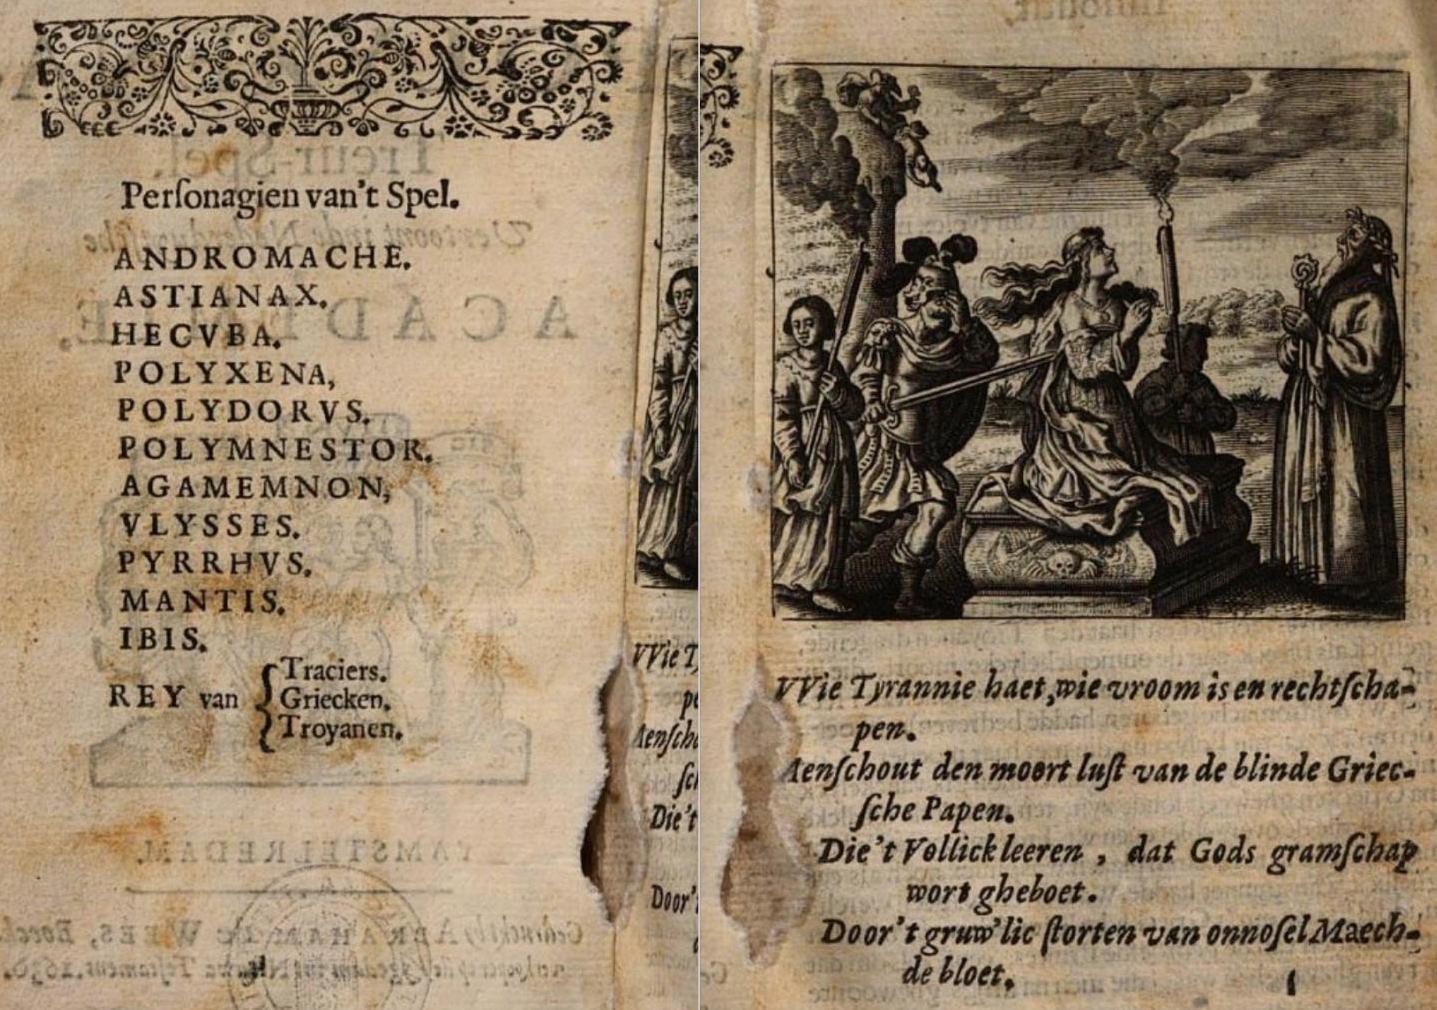 Perſonagien van't Spel.
ANDROMACHE.
ASTIANAX.
HECVBA.
POLYXENA,
POLYDORVS.
POLYMNESTOR.
AGAMEMNON,
VLYSSES.
PYRRHVS.
MANTIS.
IBIS.
Traciers.
REY van Griecken.
Troyanen.
VVie Tyrannie haet, wie vroom is en rechtſcha-
pen.
Aenſchout den moort luſt van de blinde Griec-
ſche Papen.
Die't Vollick leeren, dat Gods gramſchap
wort gheboet.
Door't gruw'lic ſtorten van onnoſel Maech-
de bloet.